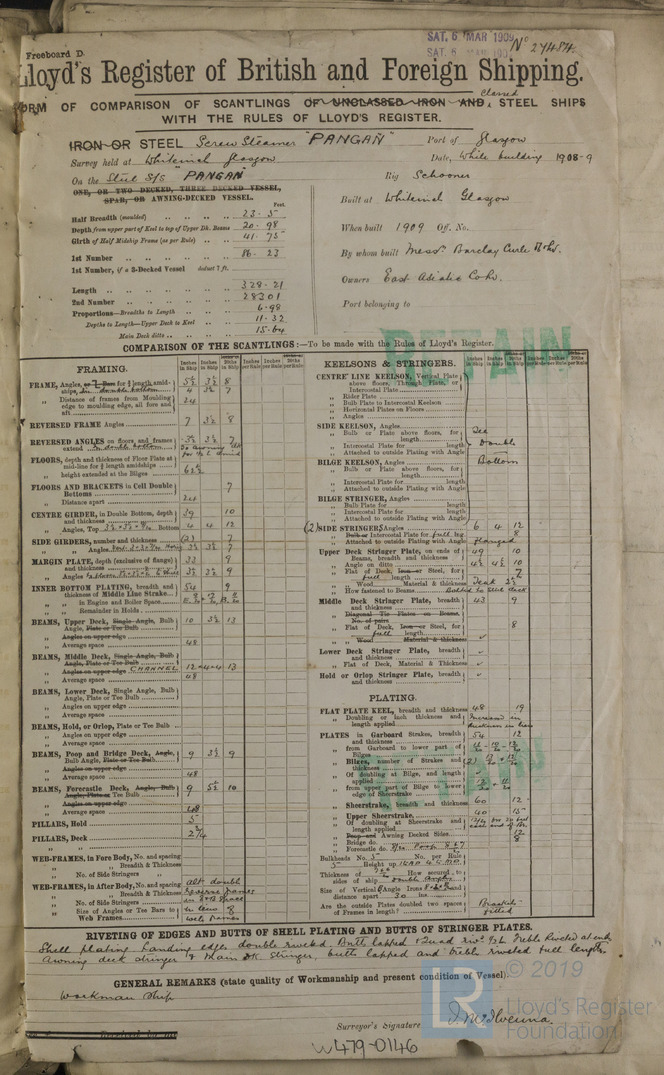 SAT. 6 MAR 1909
SAT. 6 MAR 190
No 27484
Freeboard D.
Lloyd's Register of British and Foreign Shipping.
Classed
FORM OF COMPARISON OF SCANTLINGS OF UNCLASSED IRON AND STEEL SHIPS
WITH THE RULES OF LLOYD'S REGISTER.
IRON OR STEEL Screw Steamer "PANGAN" Port of Glasgow
Survey held at Whiteinch Glasgow Date, While building 1908-9
On the Steel S/S "PANGAN" Rig Schooner
ONE, OR TWO DECKED, THREE DECKED VESSEL,
SPAR, OR AWNING-DECKED VESSEL.
Built at Whiteinch Glasgow
Feet.
Half Breadth (moulded) 23.5
Depth from upper part of Keel to top of Upper Dk. Beams 20.98
Girth of Half Midship Frame (as per Rule) 41.75
When built 1909 Off. No.
1st Number 86.23
By whom built Messrs Barclay Curle
1st Number, if a 3-Decked Vessel deduct 7 ft.
Owners East Asiatic Co
Length 328.21
2nd Number 28301
Proportions—Breadths to Length 6.98
Depths to Length—Upper Deck to Keel 11.32
Main Deck ditto 15.64
Port belonging to
RETAIN
COMPARISON OF THE SCANTLINGS:—To be made with the Rules of Lloyd's Register.
FRAMING.
FRAME, Angles, or Bars for 3/5 length amidships, in double bottom
Distance of frames from Moulding edge to moulding edge, all fore and aft 24
REVERSED FRAME Angles 7 3½ 8
REVERSED ANGLES on floors, and frames extend
FLOORS, depth and thickness of Floor Plate at mid-line for ½ length amidships
height extended at the Bilges
FLOORS AND BRACKETS in Cell Double Bottoms 7
Distance apart 24
CENTRE GIRDER, in Double Bottom, depth and thickness 39 10
Angles, Top 4 4 12
SIDE GIRDERS, number and thickness (2) 7
Angles 3½ 3½ 7
MARGIN PLATE, depth (exclusive of flange) and thickness 33 9
Angles 3½ 3½ 9
INNER BOTTOM PLATING, breadth and thickness of Middle Line Strake 54 9
in Engine and Boiler Space
Remainder in Holds
BEAMS, Upper Deck, Single Angle, Bulb Angle, Plate or Tee Bulb 10 3½ 13
Angles on upper edge
Average space 48
BEAMS, Middle Deck, Single Angle, Bulb Angle, Plate or Tee Bulb
Angles on upper edge CHANNEL 12 4 4 13
Average space 48
BEAMS, Lower Deck, Single Angle, Bulb Angle, Plate or Tee Bulb
Angles on upper edge
Average space
BEAMS, Hold, or Orlop, Plate or Tee Bulb
Angles on upper edge
Average space
BEAMS, Poop and Bridge Deck, Angle, Bulb Angle, Plate or Tee Bulb 9 3½ 9
Angles on upper edge
Average space 48
BEAMS, Forecastle Deck, Angle, Bulb Angle, Plate or Tee Bulb 9 3½ 10
Angles on upper edge
Average space 48
PILLARS, Hold 5
PILLARS, Deck 2¾
WEB-FRAMES, in Fore Body, No. and spacing
Breadth & Thickness
No. of Side Stringers
WEB-FRAMES, in After Body, No. and spacing
Breadth & Thickness
No. of Side Stringers
Size of Angles or Tee Bars to Web Frames
alt double
in lieu of
web frames
KEELSONS & STRINGERS.
CENTRE LINE KEELSON, Vertical Plate above floors, Through Plate, or Intercostal Plate
Rider Plate
Bulb Plate to Intercostal Keelson
Horizontal Plates on Floors
Angles
SIDE KEELSON, Angles
Bulb or Plate above floors, for length
Intercostal Plate for length
Attached to outside Plating with Angle
See
Double
Bottom
BILGE KEELSON, Angles
Bulb or Plate above floors, for length
Intercostal Plate for length
Attached to outside Plating with Angle
BILGE STRINGER, Angles
Bulb Plate for length
Intercostal Plate for length
Attached to outside Plating with Angle
(2) SIDE STRINGERS Angles 6 4 12
Bulb or Intercostal Plate for full lng. 8
Attached to outside Plating with Angle Flanged
Upper Deck Stringer Plate, on ends of Beams, breadth and thickness 49 10
Angle on ditto 4½ 4½ 10
Flat of Deck, Iron or Steel, for full length 7
Wood Material & thickness Teak
How fastened to Beams Bolted to steel deck
Middle Deck Stringer Plate, breadth and thickness 43 9
Diagonal Tie Plates on Beams, No. of pairs
Flat of Deck, Iron or Steel, for full length 8
Wood Material & thickness
Lower Deck Stringer Plate, breadth and thickness
Flat of Deck, Material & Thickness
Hold or Orlop Stringer Plate, breadth and thickness
PLATING.
FLAT PLATE KEEL, breadth and thickness 48 19
Doubling or inch thickness and length applied Increased in thickness in lieu
PLATES in Garboard Strakes, breadth and thickness 54 12
from Garboard to lower part of Bilges
Bilges, number of Strakes and thickness (2)
Of doubling at Bilge, and length applied
from upper part of Bilge to lower edge of Sheerstrake
Sheerstrake, breadth and thickness 60 12
Upper Sheerstrake 40 15
Of doubling at Sheerstrake and length applied
Poop and Awning Decked Sides 12
Bridge do. 8
Forecastle do.
Bulkheads No. 5 No. per Rule 5 Height up
Thickness of How secured to sides of ship double angles
Size of Vertical Angle Irons and distance apart 30 ins
Are the outside Plates doubled two spaces of Frames in length? Brackets fitted
RETAIN
RIVETING OF EDGES AND BUTTS OF SHELL PLATING AND BUTTS OF STRINGER PLATES.
Shell plating landing edges double riveted. Butts lapped & Quad rivd ½ L Treble Riveted at ends
Awning deck stringer & Main Dk. Stringer, butts lapped and treble riveted full length
GENERAL REMARKS (state quality of Workmanship and present condition of Vessel).
Workmanship
Surveyor's Signature
W479-0146
© 2019
Lloyd's Register
Foundation